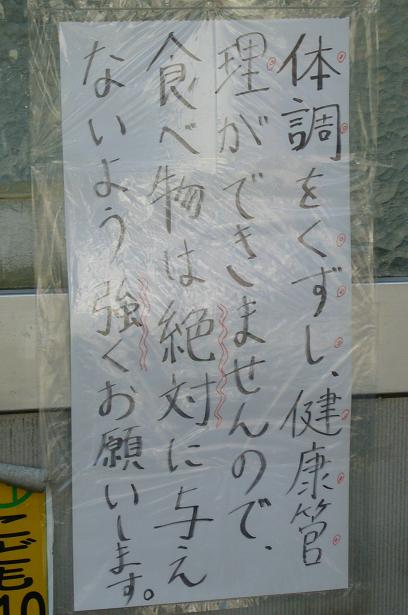 体調をくずし、健康管
理ができませんので、
食べ物は絶対に与え
ないよう強くお願いします。
こども
10